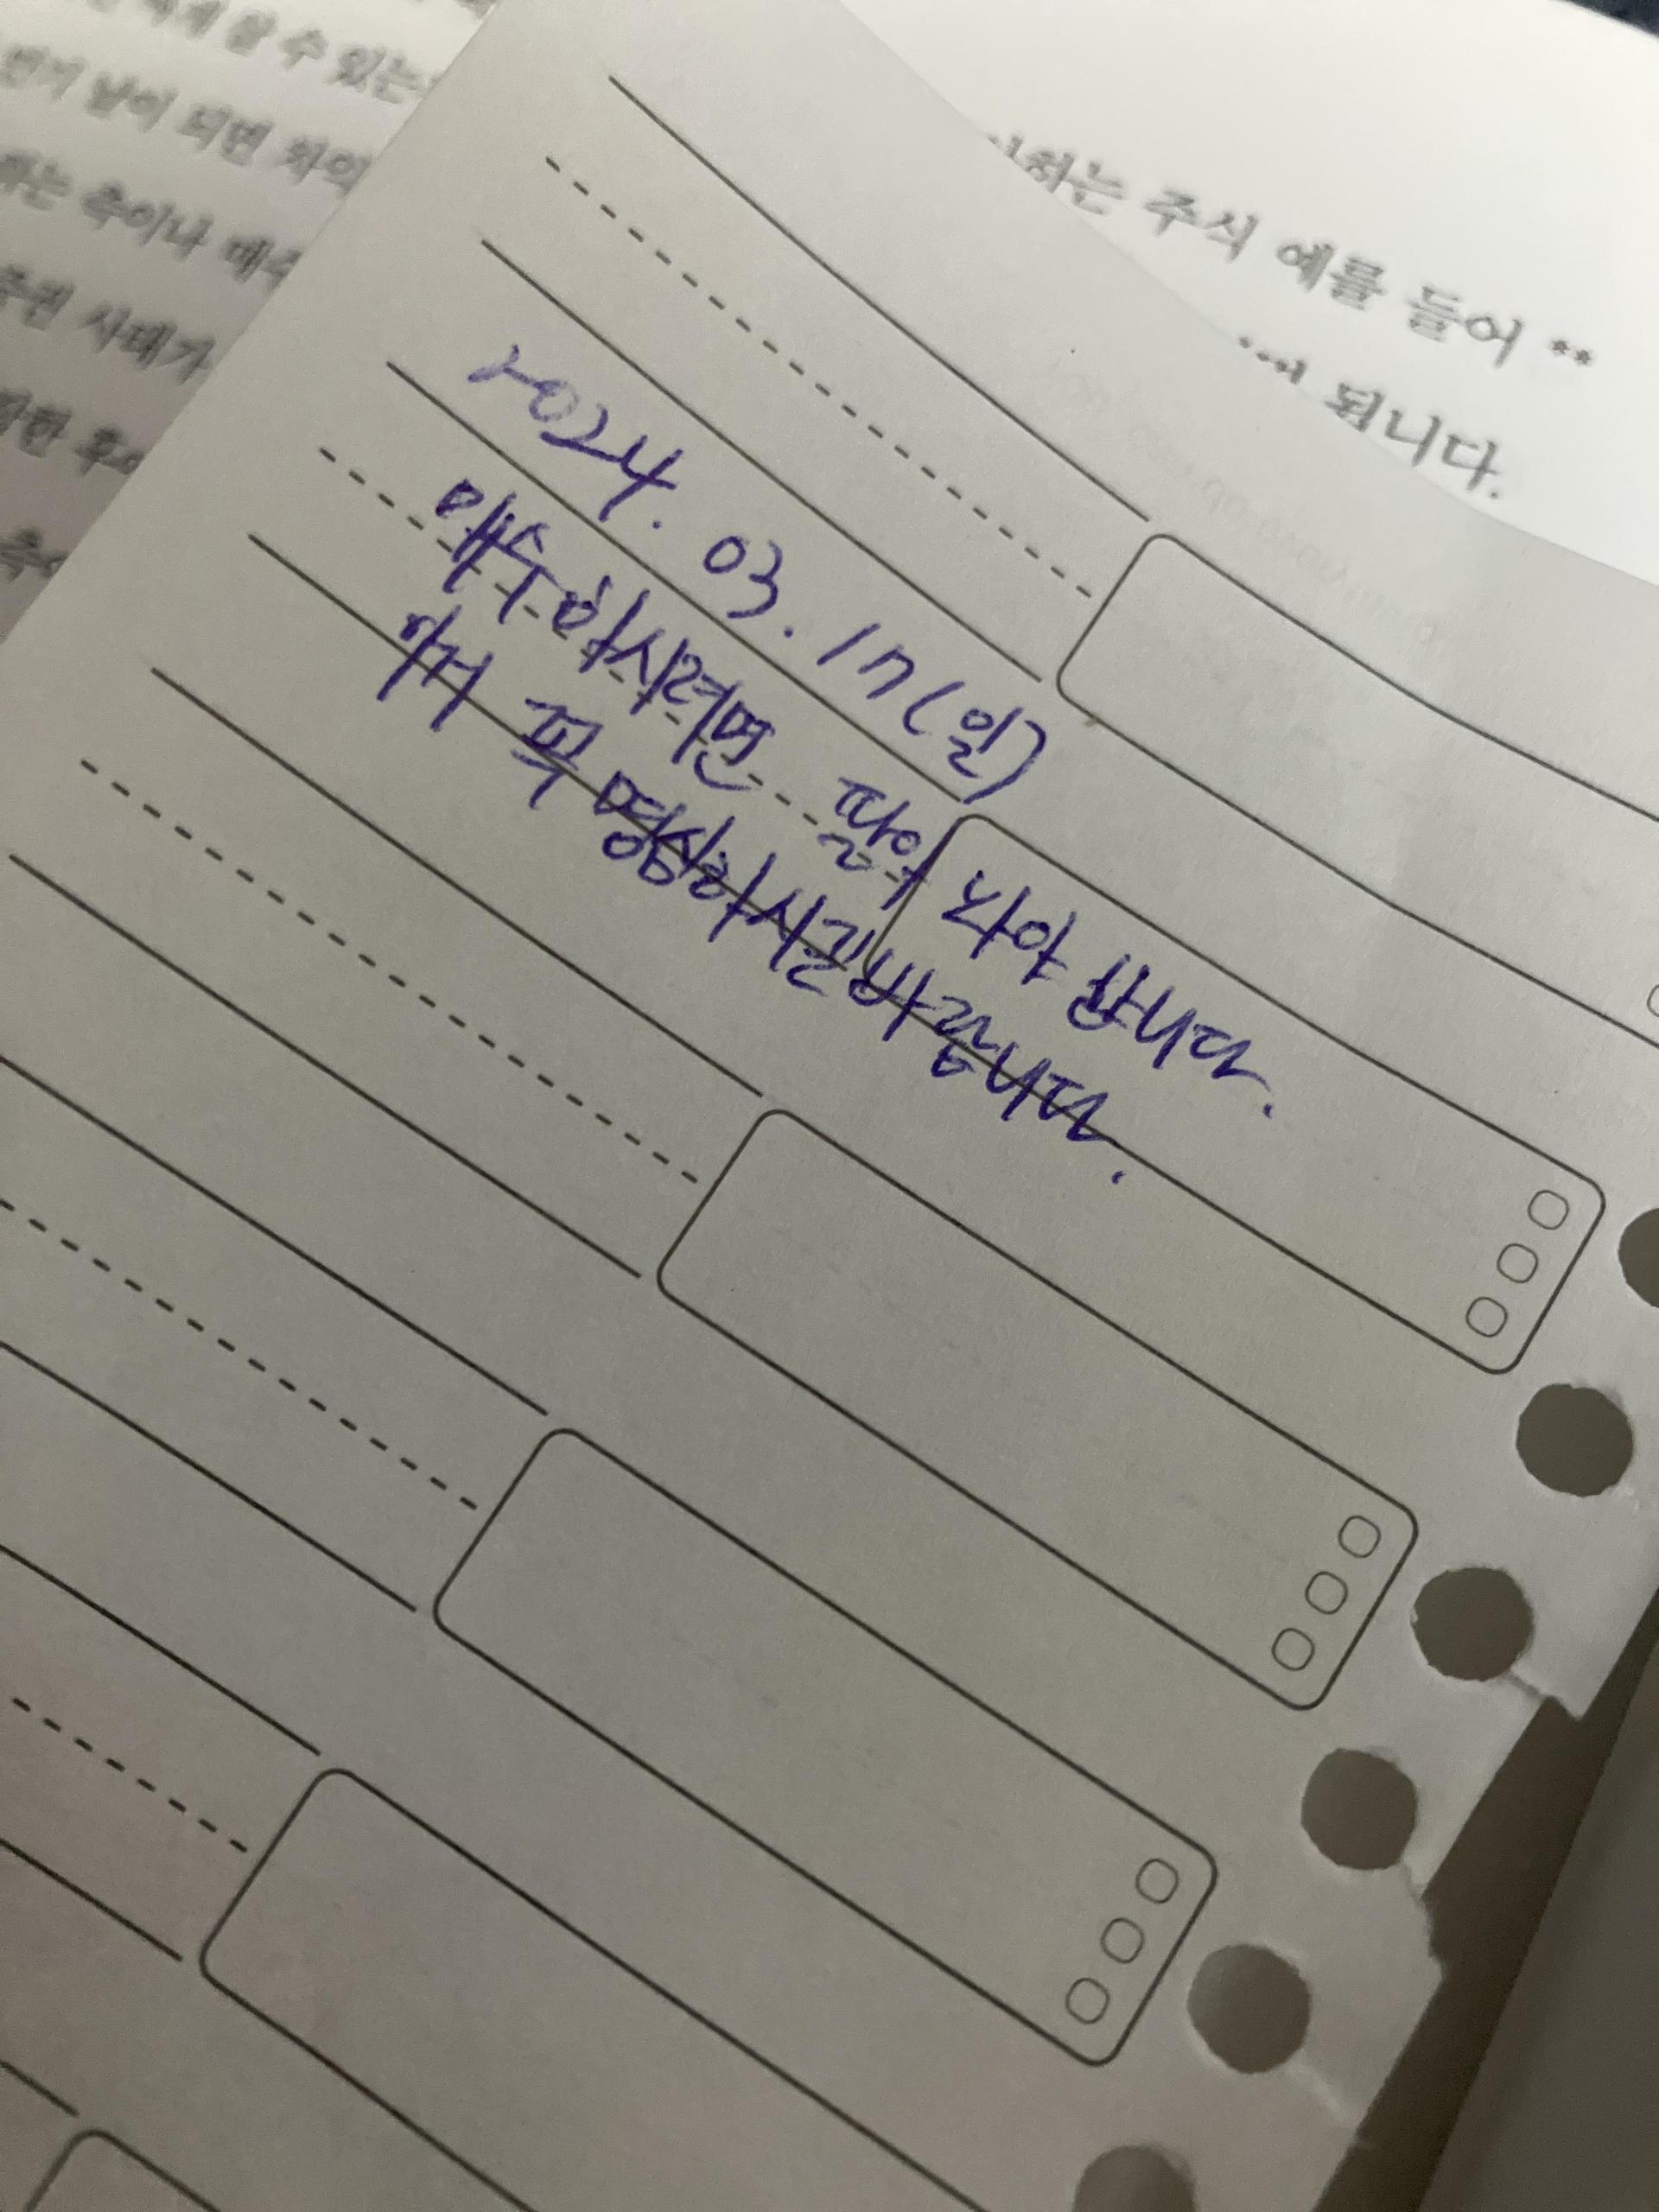 할 수 있는
날이 되면 차익
하는 측이나 매수
사태가
하는 주식 예를 들어 **
됩니다.
2024. 03. 17(일)
매수하시려면 팔아 합니다.
이거 꼭 명심하시길바랍니다.